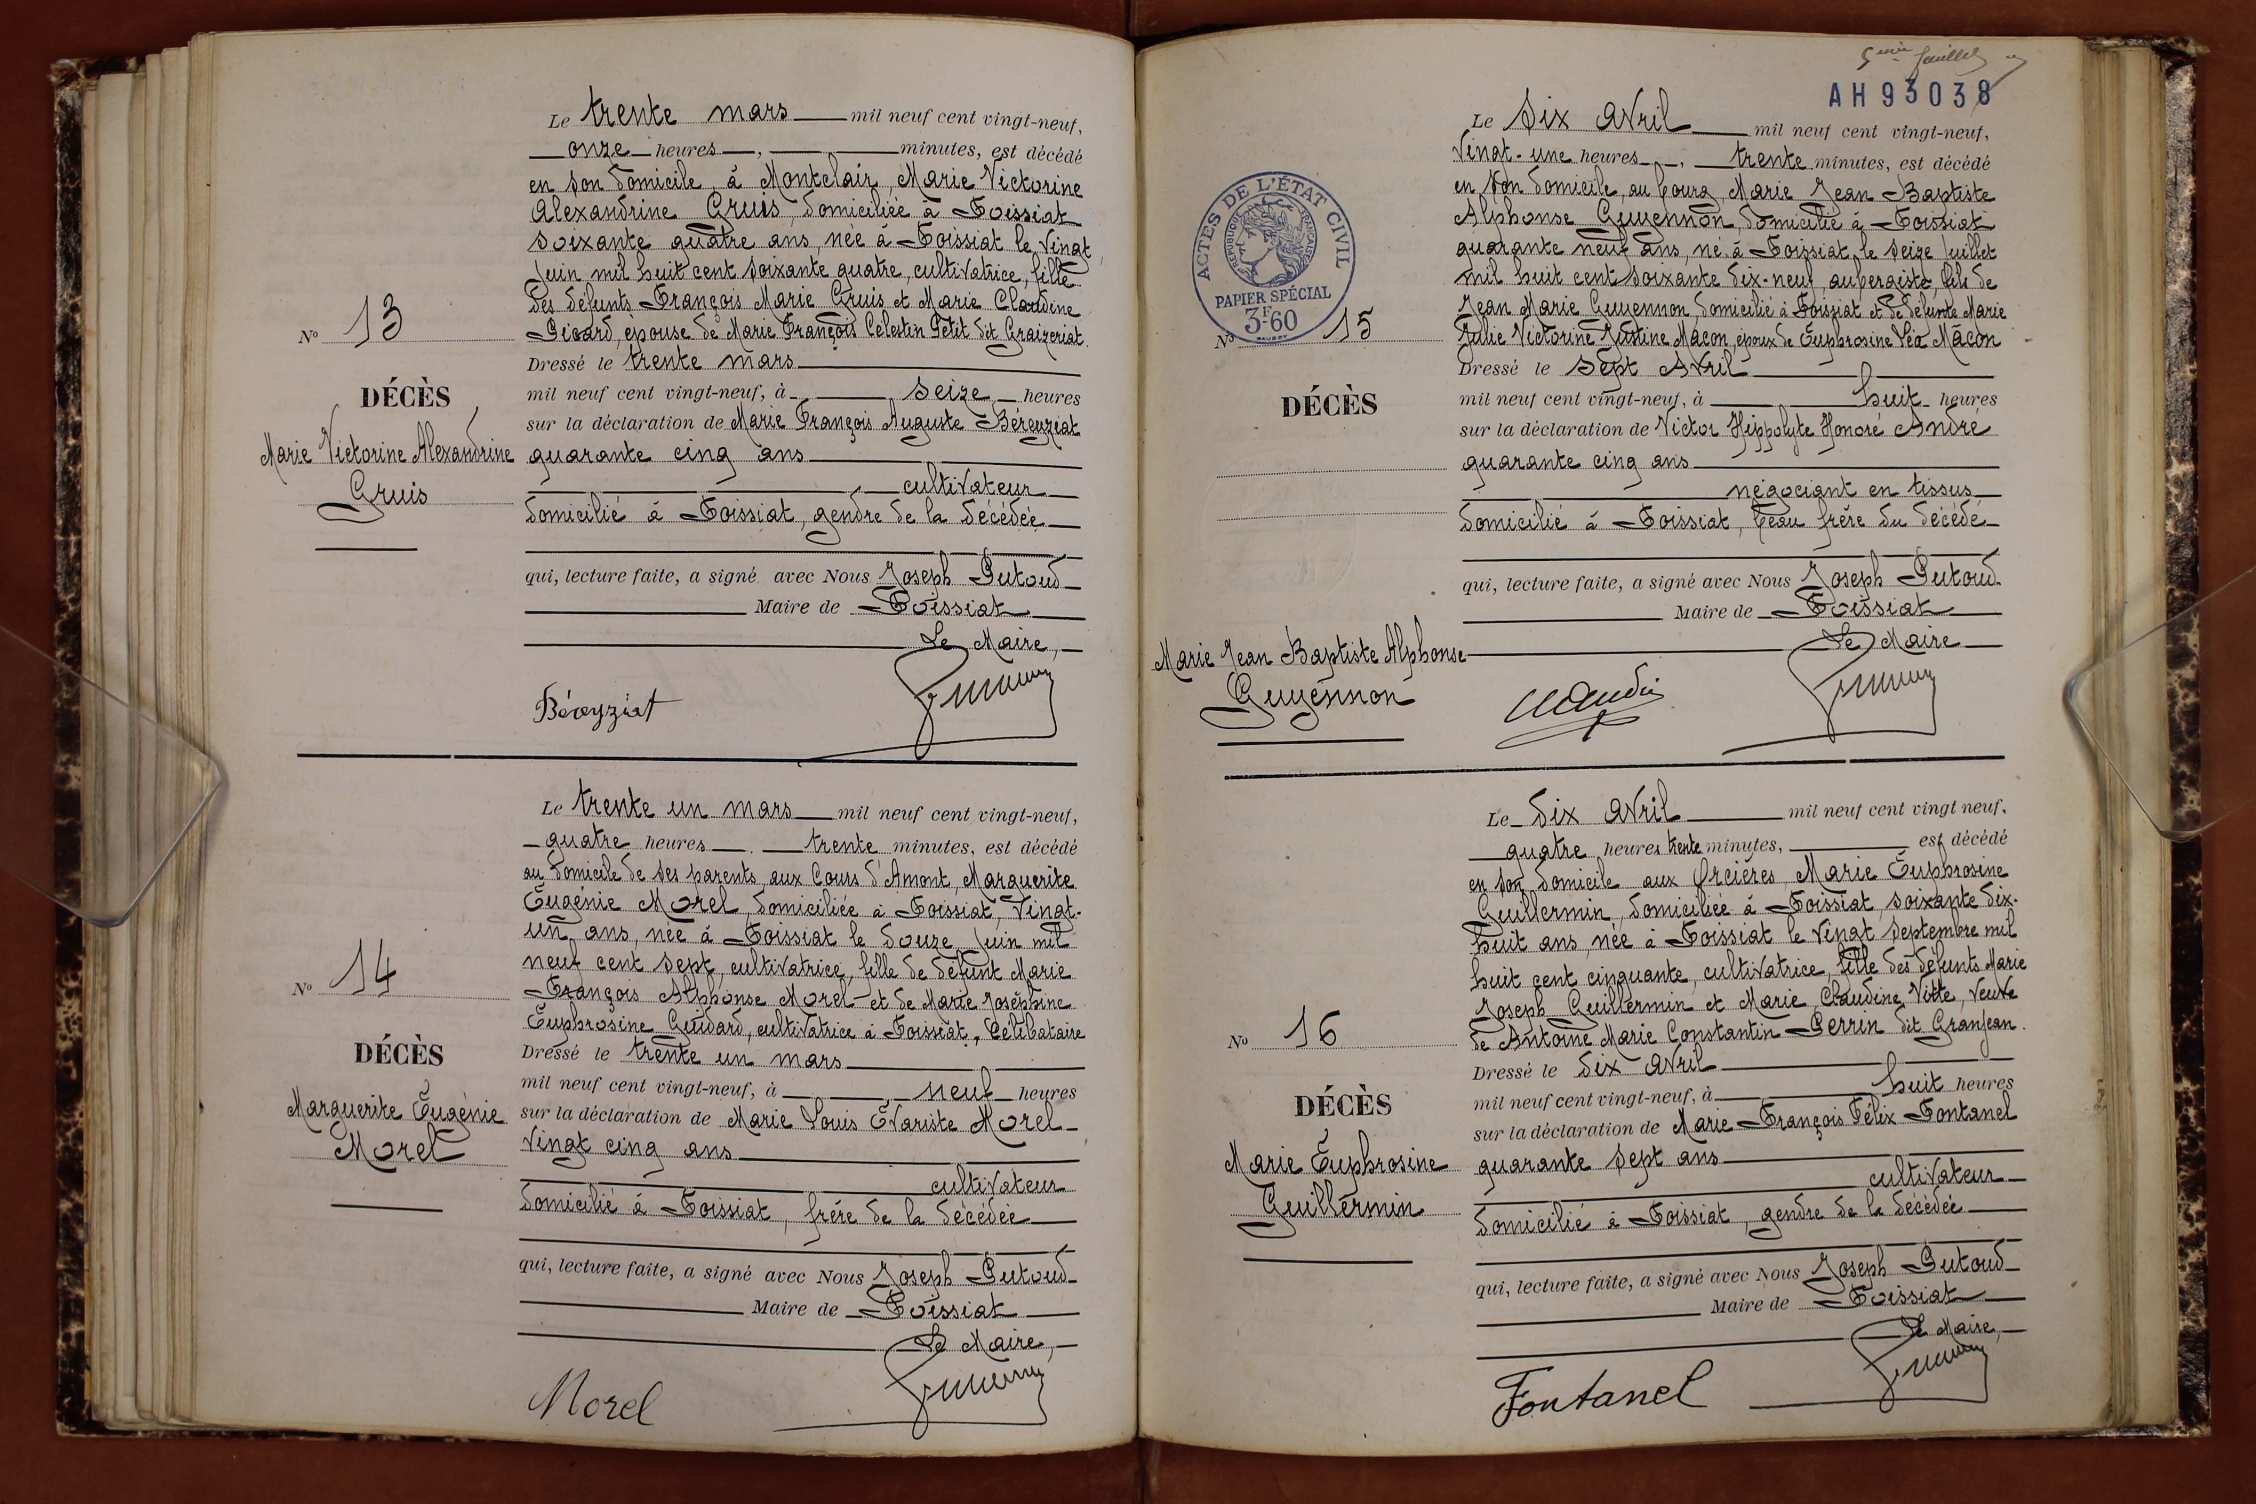 Le trente mars mil neuf cent vingt-neuf,
onze heures, minutes, est décédé
en son domicile, à Montclair, Marie Victorine
Alexandrine Gruis, domiciliée à Foissiat
soixante quatre ans, née à Foissiat le vingt
juin mil huit cent soixante quatre, cultivatrice, fille
des défunts François Marie Gruis et Marie Claudine
épouse de Marie François Célestin Petit dit Graizeriat
Nº 13
Dressé le trente mars
DÉCÈS
mil neuf cent vingt-neuf, à seize heures
sur la déclaration de Marie François Auguste Béreyziat
Marie Victorine Alexandrine
Gruis
quarante cinq ans
cultivateur
domicilié à Foissiat, gendre de la décédée
qui, lecture faite, a signé avec Nous Joseph Putoud
Maire de Foissiat
Le Maire,
Béreyziat
Le trente un mars mil neuf cent vingt-neuf,
quatre heures trente minutes, est décédé
au domicile de ses parents, aux Cours d'Amont, Marguerite
Eugénie Morel, domiciliée à Foissiat, vingt-
un ans, née à Foissiat le douze juin mil
neuf cent sept, cultivatrice, fille de défunt Marie
François Alphonse Morel et de Marie Joséphine
Euphrosine Guidard, cultivatrice à Foissiat, Célibataire
Nº 14
Dressé le trente un mars
DÉCÈS
mil neuf cent vingt-neuf, à neuf heures
sur la déclaration de Marie Louis Évariste Morel
Marguerite Eugénie
Morel
vingt cinq ans
cultivateur
domicilié à Foissiat, frère de la décédée
qui, lecture faite, a signé avec Nous Joseph Putoud
Maire de Foissiat
Le Maire,
Morel
5ème feuillet
AH93038
Le six avril mil neuf cent vingt-neuf,
vingt-une heures, trente minutes, est décédé
en son domicile, au bourg, Marie Jean Baptiste
Alphonse Guyennon, domicilié à Foissiat
quarante neuf ans, né à Foissiat le seize juillet
mil huit cent soixante dix-neuf, aubergiste, fils de
Jean Marie Guyennon, domicilié à Foissiat et de défunte Marie
Julie Victorine Justine Mâcon, époux de Euphrosine Léa Mâcon
ACTES DE L'ÉTAT CIVIL
RÉPUBLIQUE FRANÇAISE
PAPIER SPÉCIAL
3F60
Nº 15
Dressé le sept avril
DÉCÈS
mil neuf cent vingt-neuf, à huit heures
sur la déclaration de Victor Hippolyte Honoré André
quarante cinq ans
négociant en tissus
domicilié à Foissiat, beau frère du décédé
qui, lecture faite, a signé avec Nous Joseph Putoud
Maire de Foissiat
Le Maire
Marie Jean Baptiste Alphonse
Guyennon
Le dix avril mil neuf cent vingt neuf,
quatre heures trente minutes, est décédé
en son domicile aux Marie Euphrosine
Guillermin, domiciliée à Foissiat, soixante dix-
huit ans, née à Foissiat le vingt septembre mil
huit cent cinquante, cultivatrice, fille des défunts Marie
Joseph Guillermin et Marie Claudine Vitte, veuve
de Antoine Marie Constantin Perrin dit Granjean
Nº 16
Dressé le dix avril
DÉCÈS
mil neuf cent vingt-neuf, à huit heures
sur la déclaration de Marie François Félix Fontanel
Marie Euphrosine
Guillermin
quarante sept ans
cultivateur
domicilié à Foissiat, gendre de la décédée
qui, lecture faite, a signé avec Nous Joseph Putoud
Maire de Foissiat
Le Maire,
Fontanel